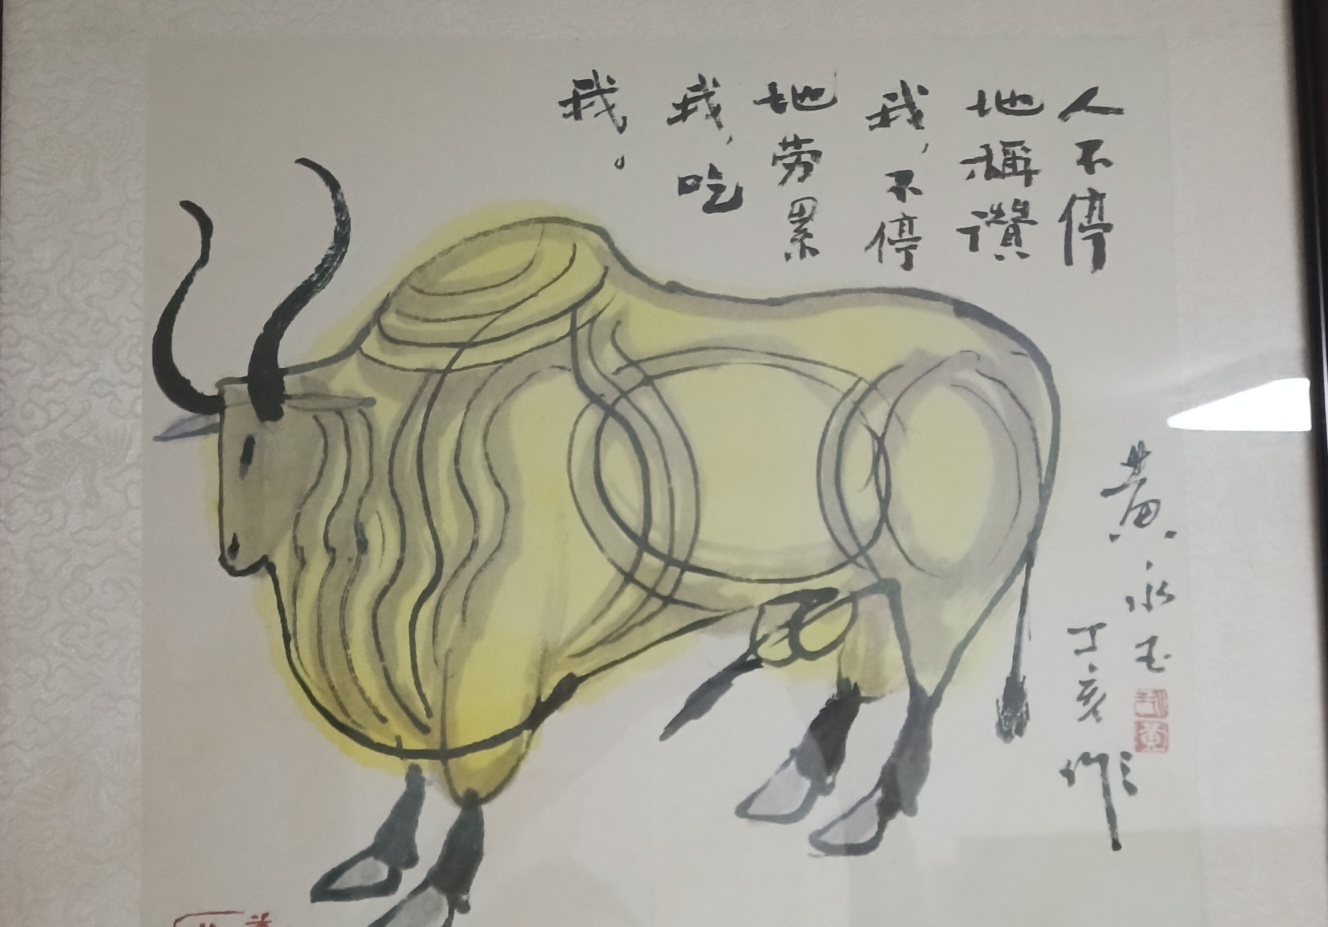 人不停
地稱讚
我，不停
地劳累
我，吃
我。
黄永玉
丁亥作